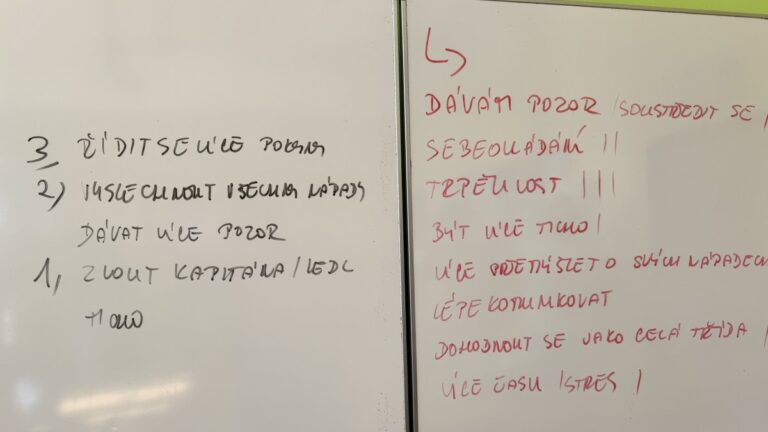 3, ŘÍDIT SE VÍCE POKYNY
2) VYSLECHNOUT VŠECHNY NÁPADY
DÁVAT VÍCE POZOR
1, ZVOLIT KAPITÁNA / VEDE
TICHO
DÁVÁM POZOR / SOUSTŘEDIT SE |
SEBEOVLÁDÁNÍ ||
TRPĚLIVOST |||
BÝT VÍCE TICHO |
VÍCE PŘEMÝŠLET O SVÝCH NÁPADECH
LÉPE KOMUNIKOVAT
DOHODNOUT SE JAKO CELÁ TŘÍDA |
VÍCE ČASU / STRES |